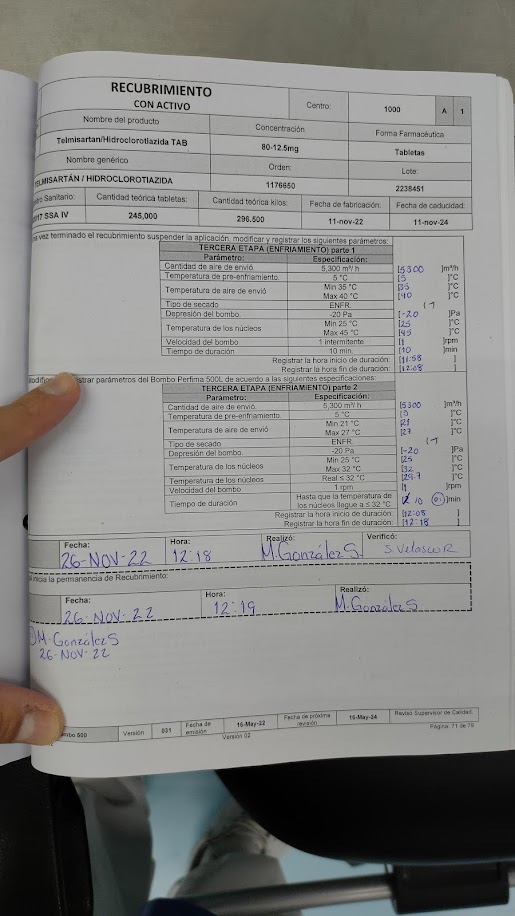 RECUBRIMIENTO
CON ACTIVO
Centro: 1000 A 1
Nombre del producto Concentración Forma Farmacéutica
Telmisartan/Hidroclorotiazida TAB 80-12.5mg Tabletas
Nombre genérico Orden: Lote:
TELMISARTÁN / HIDROCLOROTIAZIDA 1176650 2238451
Sanitario: Cantidad teórica tabletas: Cantidad teórica kilos: Fecha de fabricación: Fecha de caducidad:
SSA IV 245,000 296.500 11-nov-22 11-nov-24
vez terminado el recubrimiento suspender la aplicación, modificar y registrar los siguientes parámetros:
TERCERA ETAPA (ENFRIAMIENTO) parte 1
Parámetro: Especificación:
Cantidad de aire de envió. 5,300 m³/ h [5300 ]m³/h
Temperatura de pre-enfriamiento. 5 °C [5 ]°C
Temperatura de aire de envió Min 35 °C [35 ]°C
Max 40 °C [40 ]°C
Tipo de secado ENFR.
Depresión del bombo. -20 Pa [-20 ]Pa
Temperatura de los núcleos Min 25 °C [25 ]°C
Max 45 °C [45 ]°C
Velocidad del bombo 1 intermitente [1 ]rpm
Tiempo de duración 10 min. [10 ]min
Registrar la hora inicio de duración: [11:58 ]
Registrar la hora fin de duración: [12:08 ]
parámetros del Bombo Perfima 500L de acuerdo a las siguientes especificaciones:
TERCERA ETAPA (ENFRIAMIENTO) parte 2
Parámetro: Especificación:
Cantidad de aire de envió. 5,300 m³/ h [5300 ]m³/h
Temperatura de pre-enfriamiento. 5 °C [5 ]°C
Temperatura de aire de envió Min 21 °C [21 ]°C
Max 27 °C [27 ]°C
Tipo de secado ENFR.
Depresión del bombo. -20 Pa [-20 ]Pa
Temperatura de los núcleos Min 25 °C [25 ]°C
Max 32 °C [32 ]°C
Temperatura de los núcleos Real ≤ 32 °C [29.7 ]°C
Velocidad del bombo 1 rpm [1 ]rpm
Tiempo de duración Hasta que la temperatura de
los núcleos llegue a ≤ 32 °C 10 ]min
Registrar la hora inicio de duración: [12:08 ]
Registrar la hora fin de duración: [12:18 ]
Fecha: Hora: Realizó: Verificó:
26-NOV-22 12:18 M.González S. S. Velasco R
inicia la permanencia de Recubrimiento:
Fecha: Hora: Realizó:
26-NOV-22 12:19 M.González S
M.González S
26-NOV-22
500 Versión 031 Fecha de emisión 16-May-22 Fecha de próxima revisión 16-May-24 Revisó Supervisor de Calidad.
Versión 02 Página: 71 de 79